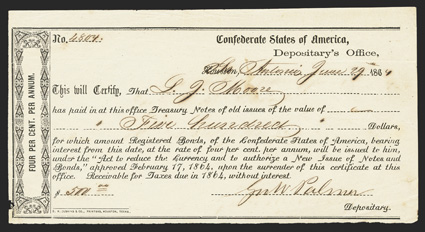 No. 4304.
Confederate States of America,
Depositary's Office,
San Antonio June 29 1864
This will Certify, That
has paid in at this office Treasury Notes of old issues of the value of
Five hundred Dollars,
for which amount Registered Bonds, of the Confederate States of America, bearing
interest from this date, at the rate of four per cent. per annum, will be issued to him,
under the "Act to reduce the Currency and to authorize a New Issue of Notes and
Bonds," approved February 17, 1864, upon the surrender of this certificate at this
office. Receivable for Taxes due in 1864, without interest.
$500
Depositary.
FOUR PER CENT. PER ANNUM.